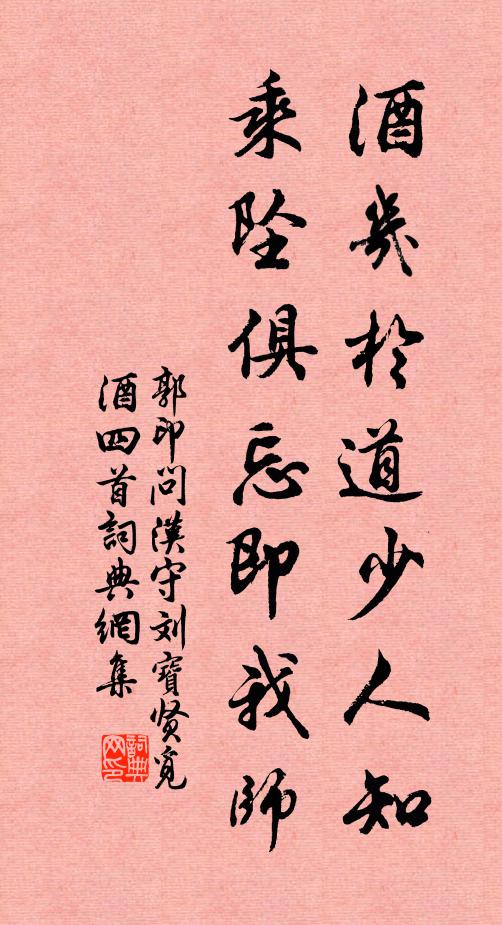 酒几於道少人知
乘坠俱忘即我師
郭印問漢守刘寶贤覓
酒四首詞典網集
詞典网印